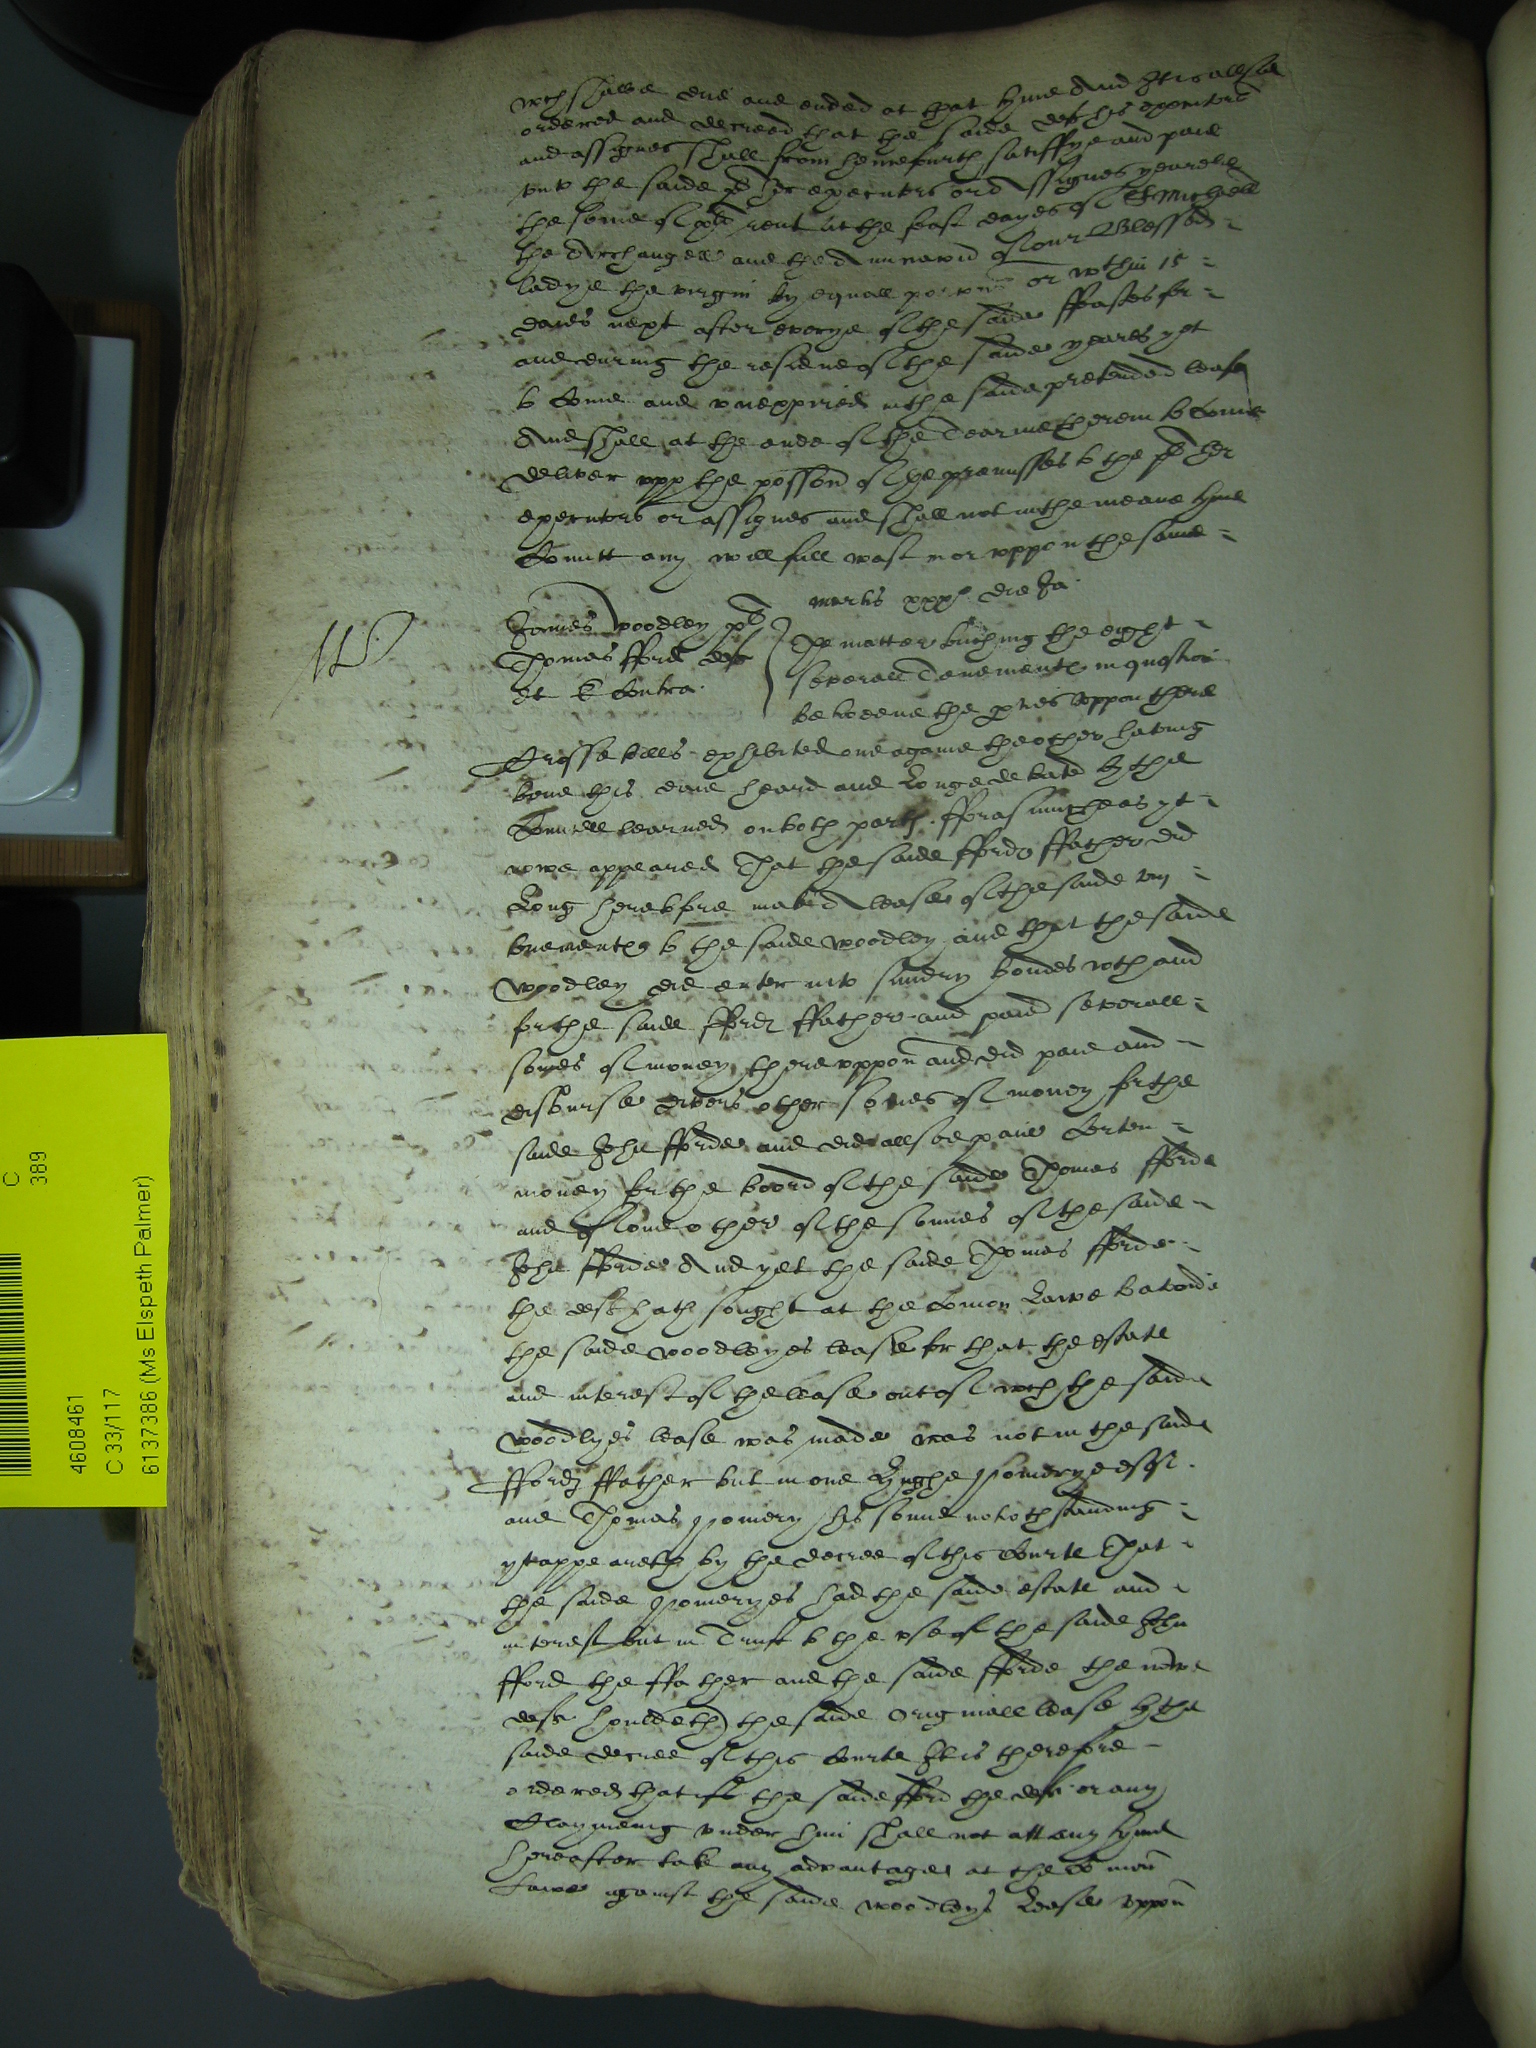 wch shalbe due and ended at that tyme And It is allsoe
ordered and decreed that the saide deft his executors
and assignes shall from hencefurth satisffye and paie
unto the saide pl her executors or assignes yearelie
the some of rent at the feast dayes of St Michell
the Archangell and the Annunciacon of our Blessed
ladye the virgin by equall porcons or wthin 15
daies next after everye of the saide ffeastes for
and during the residue of the saide yeares yet
to come and unexpired in the saide pretended lease
And shall at the ende of the Tearme therein to come
deliver upp the possion of the premisses to the pl her
executors or assignes and shall not in the meane tyme
Comitt any willfull wast in or uppon the same
martis xxx die Ja
James Woodley pl
Thomas fford deft
et e Contra
The matter touching the eight
severall Tenements in question
betweene the pties uppon there
Crosse bills exhibited one againe the other having
bene this daie heard and Longe debated by the
Councell learned on both parts. fforasmuche as yt
nowe appeared That the saide ffords ffather did
Long heretofore make A lease of the saide viij
tenements to the saide Woodley and that the saide
Woodley did enter into sundry bondes wth and
for the saide ffords ffather and paid severall
somes of money thereuppon and did paie and
disburse divers other somes of money for the
saide John fforde and did allsoe paie Certen
money for the boord of the saide Thomas fforde
and of some other of the sonnes of the saide
John fforde And yet the saide Thomas fforde
the deft hath sought at the Comon Lawe to avoid
the saide Woodleyes lease for that the estate
and interest of the lease out of wch the saide
Woodlyes lease was made was not in the saide
ffords ffather but in one Hughe Pomerye esqr.
and Thomas Pomery his sonne notwthstanding
yt appeareth by the decree of this Courte That
the saide Pomeryes had the saide estate and
interest but in Trust to the use of the saide John
fford the ffather and the saide fforde the nowe
deft houldeth the saide Originall lease by the
saide decree of this Courte It is therefore
ordered that if the saide fford the deft or any
Clayming under him shall not att any tyme
hereafter take any advantage at the Comon
Lawe against the saide Woodleys Lease uppon
C
389
4608461
C 33/117
6137386 (Ms Elspeth Palmer)